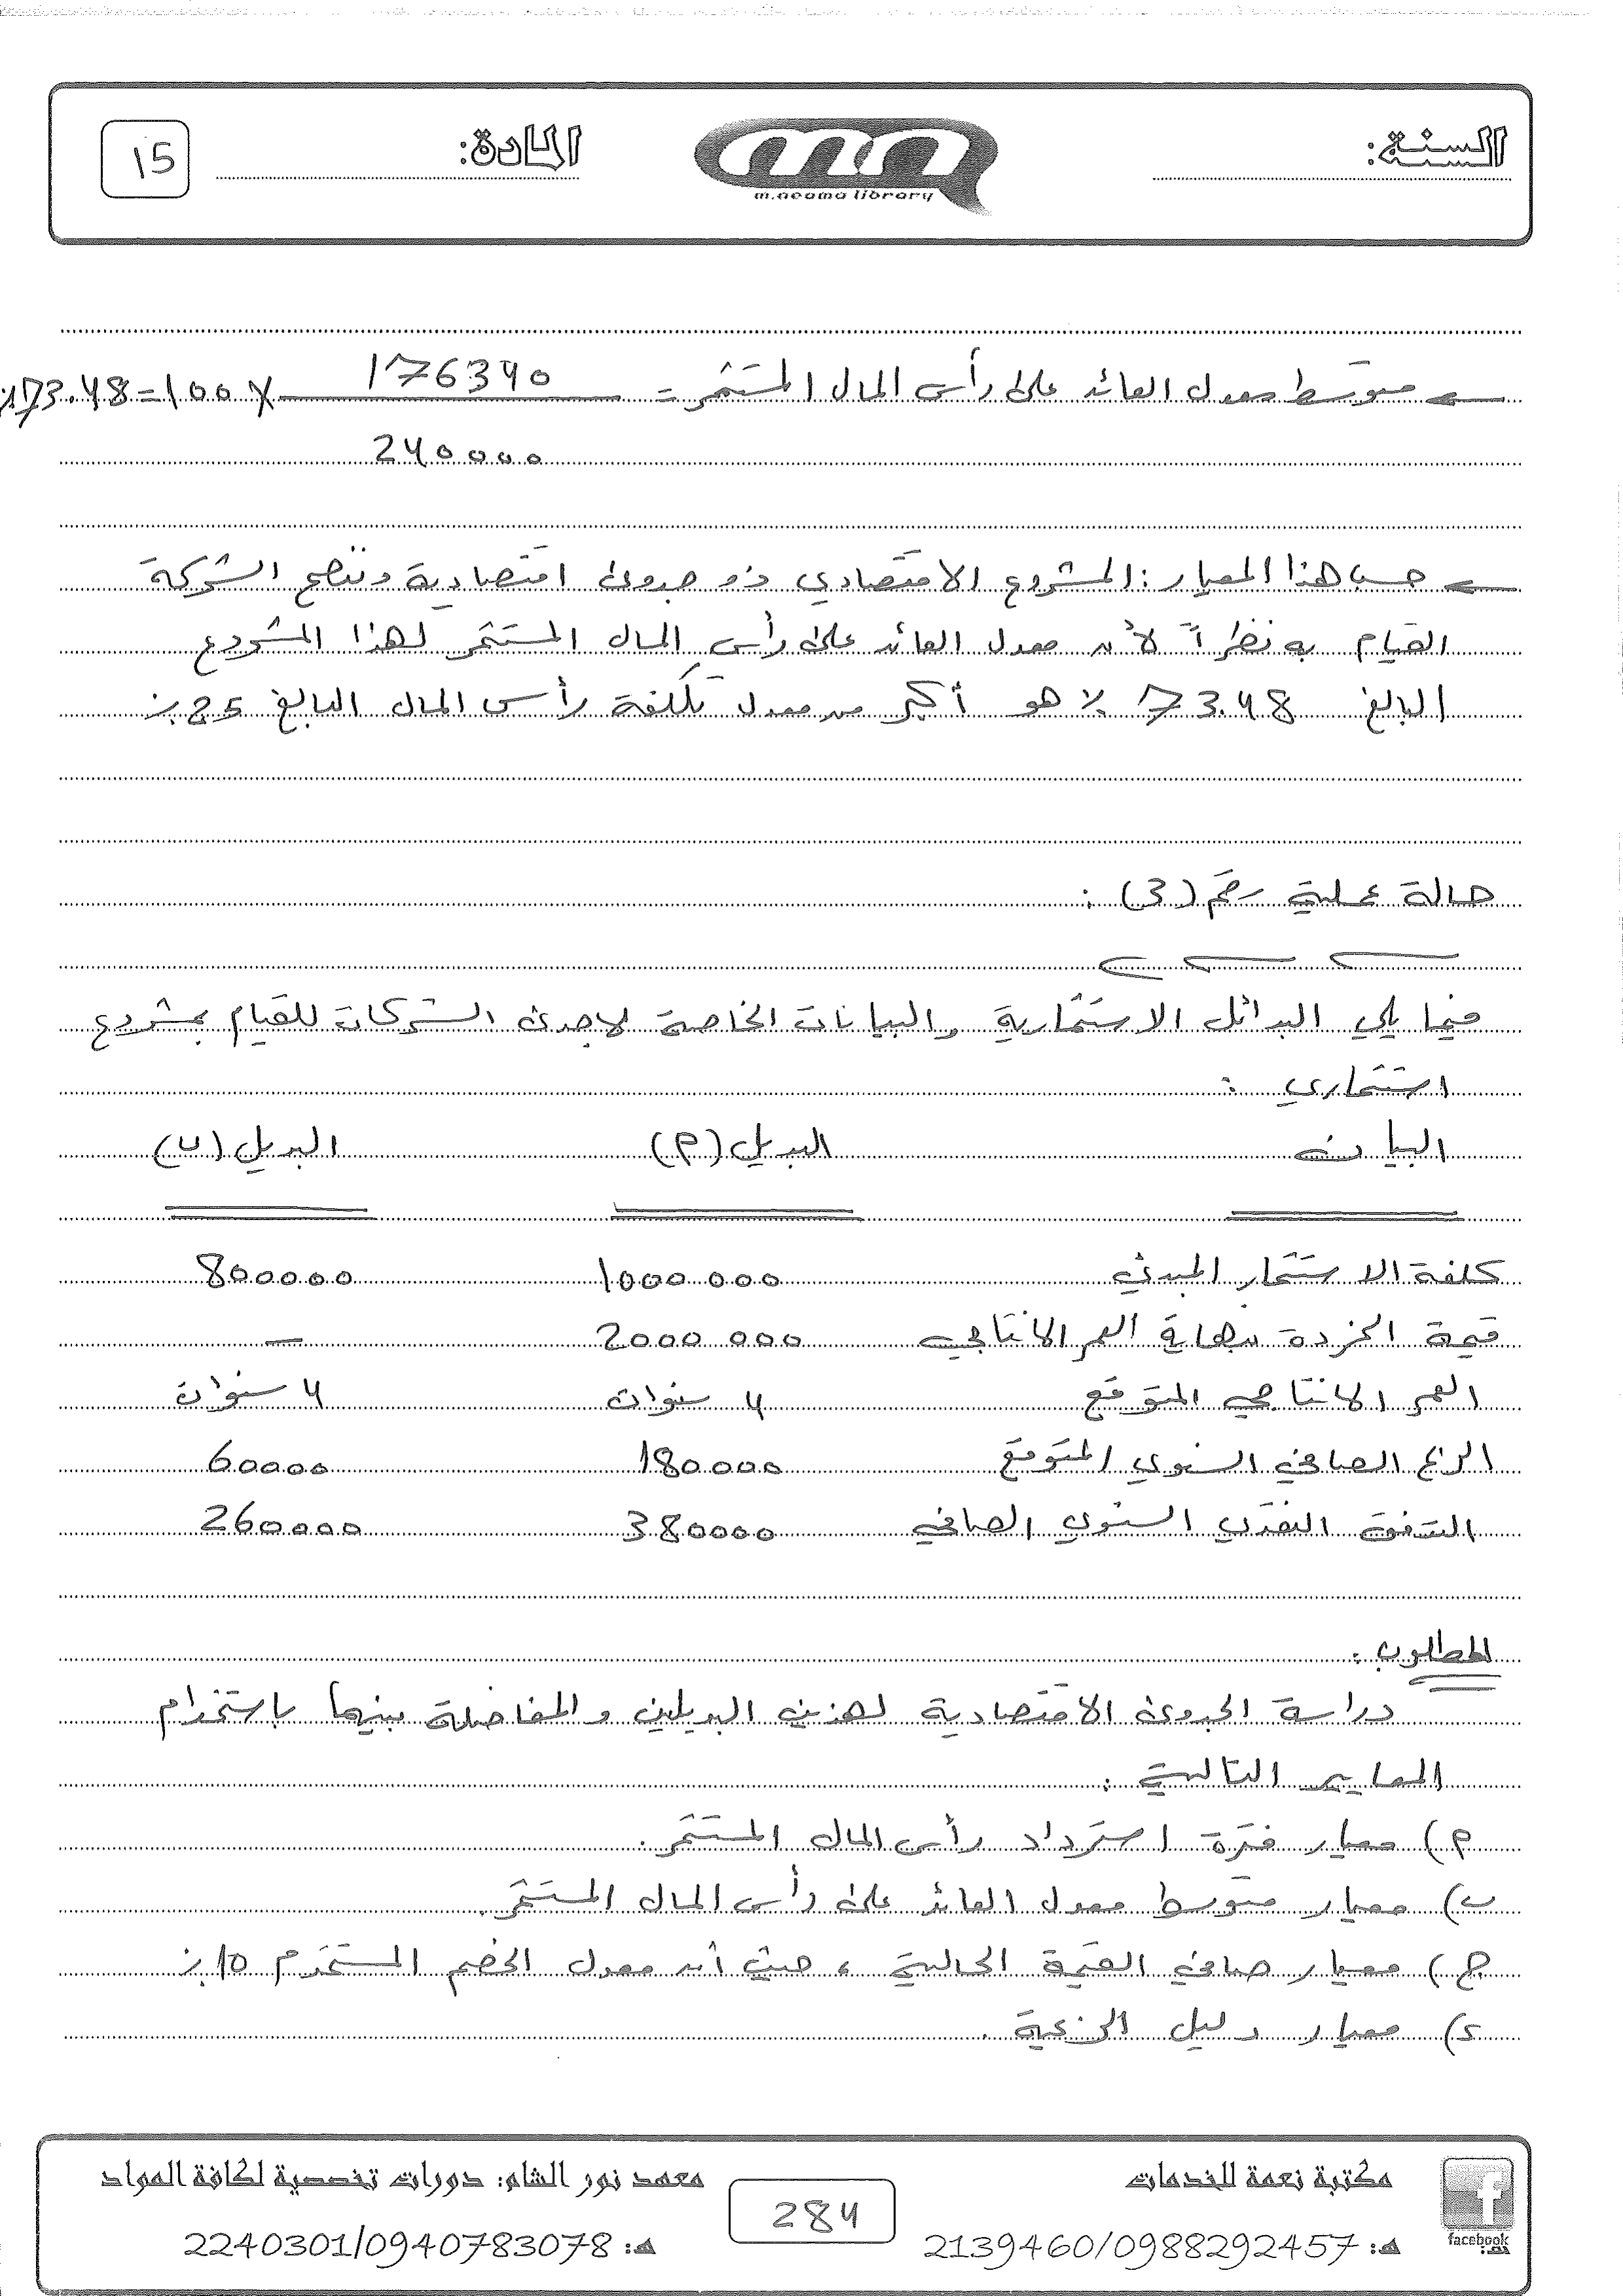 السنة:
m.neoma library
المادة:
15
متوسط معدل العائد على رأس المال المستثمر = 176340 / 240000 × 100 = 73.48٪
حسب هذا المعيار: المشروع الاقتصادي ذو جدوى اقتصادية وننصح الشركة
القيام به نظراً لأن معدل العائد على رأس المال المستثمر لهذا المشروع
البالغ 73.48٪ هو أكبر من معدل تكلفة رأس المال البالغ 25٪
حالة عملية رقم (3):
فيما يلي البدائل الاستثمارية والبيانات الخاصة لإحدى الشركات للقيام بمشروع
استثماري:
البيان البديل (م) البديل (ب)
كلفة الاستثمار المبدئي 1000000 800000
قيمة الخردة بنهاية العمر الانتاجي 2000000 —
العمر الانتاجي المتوقع 4 سنوات 4 سنوات
الربح الصافي السنوي المتوقع 180000 60000
التدفق النقدي السنوي الصافي 380000 260000
المطلوب:
دراسة الجدوى الاقتصادية لهذين البديلين والمفاضلة بينهما باستخدام
المعايير التالية:
م) معيار فترة استرداد رأس المال المستثمر.
ب) معيار متوسط معدل العائد على رأس المال المستثمر.
ج) معيار صافي القيمة الحالية، حيث أن معدل الخصم المستخدم 10٪
د) معيار دليل الربحية.
facebook
مكتبة نعمة للخدمات
هـ: 2139460/0988292457
284
معهد نور الشام: دورات تخصصية لكافة المواد
هـ: 2240301/0940783078